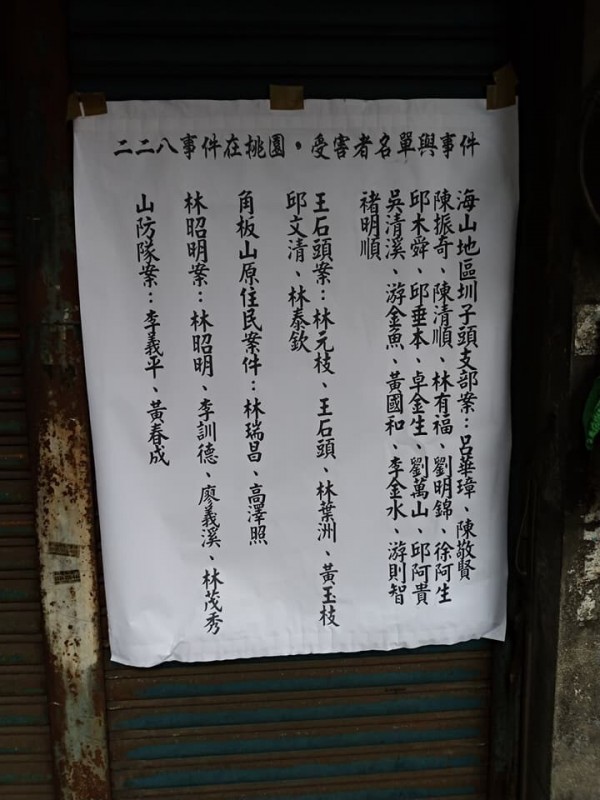 二二八事件在桃園。受害者名單與事件
海山地區圳子頭支部案：呂華璋、陳敬賢
陳振奇、陳清順、林有福、劉明錦、徐阿生
邱木舜、邱垂本、卓金生、劉萬山、邱阿貴
吳清溪、游金魚、黃國和、李金水、游則智
褚明順
王石頭案：林元枝、王石頭、林葉洲、黃玉枝
邱文清、林泰欽
角板山原住民案件：林瑞昌、高澤照
林昭明案：林昭明、李訓德、廖義溪、林茂秀
山防隊案：李義平、黃春成